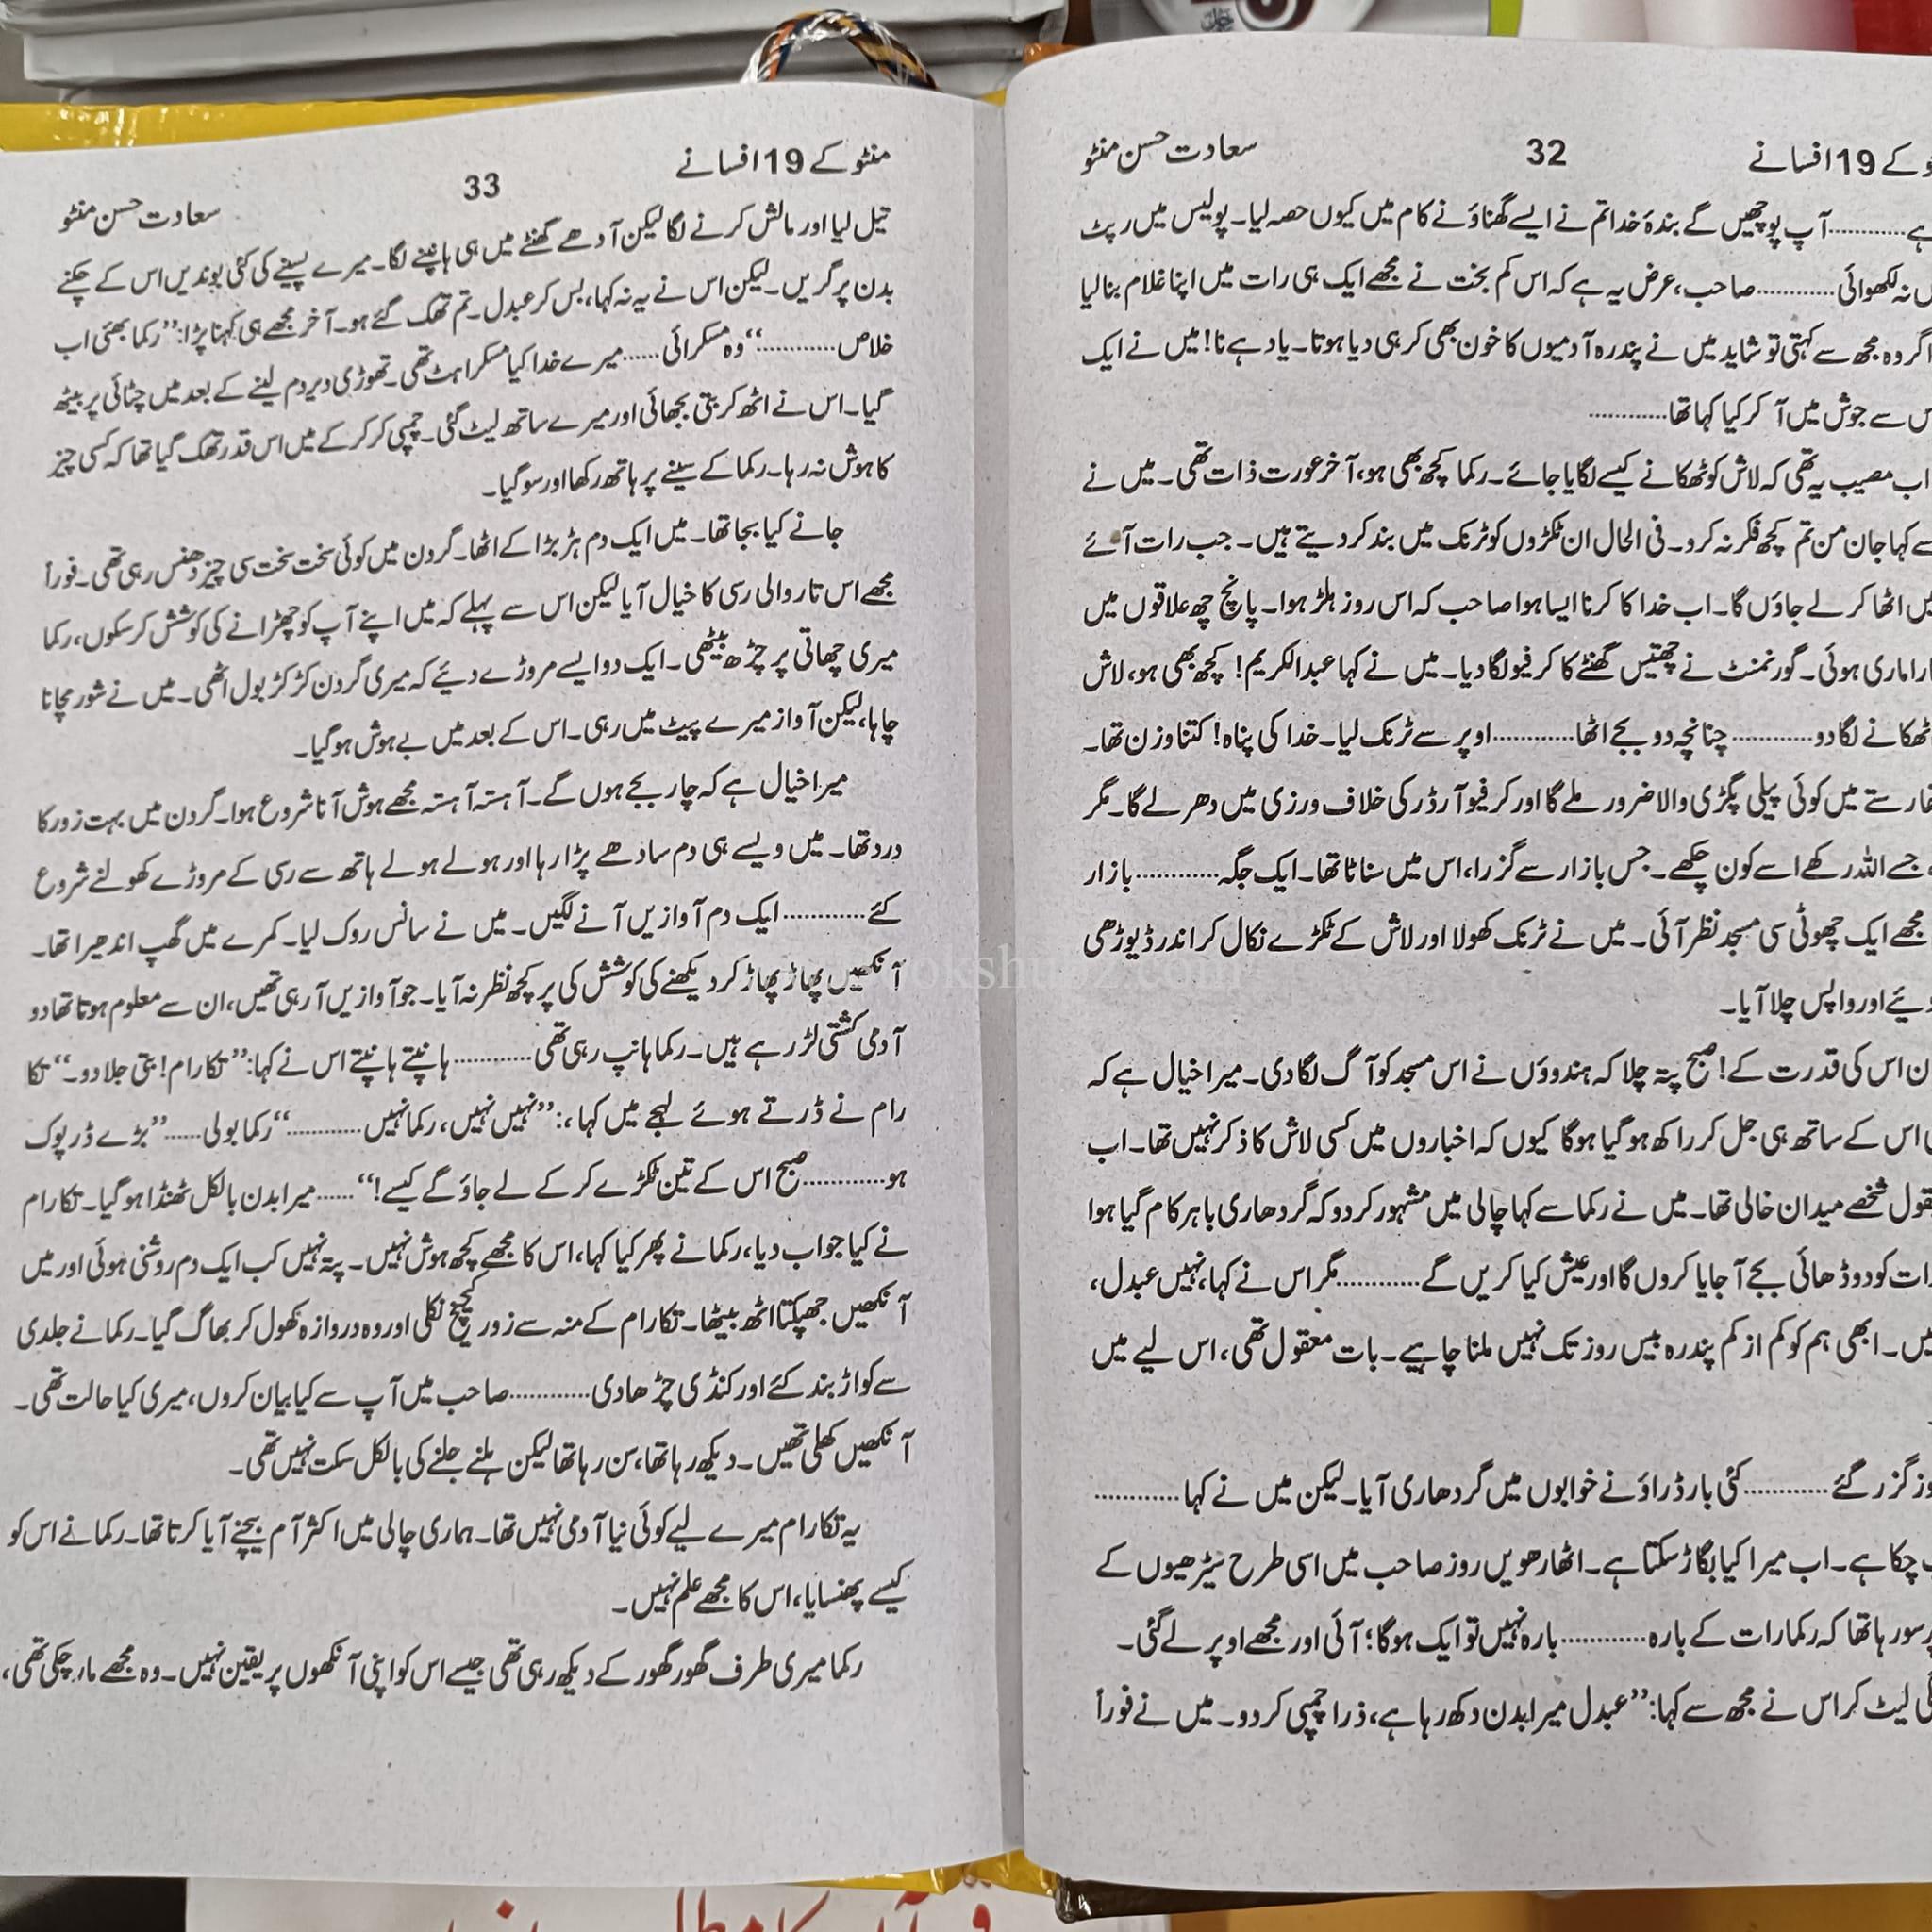 کے 19 افسانے 32 سعادت حسن منٹو
ہے............آپ پوچھیں گے بندۂ خدا تم نے ایسے گھناؤنے کام میں کیوں حصہ لیا۔ پولیس میں رپٹ
نہ لکھوائی............صاحب، عرض یہ ہے کہ اس کم بخت نے مجھے ایک ہی رات میں اپنا غلام بنا لیا
اگر وہ مجھ سے کہتی تو شاید میں نے پندرہ آدمیوں کا خون بھی کر ہی دیا ہوتا۔ یاد ہے نا! میں نے ایک
سے جوش میں آ کر کیا کہا تھا............
اب مصیبت یہ تھی کہ لاش کو ٹھکانے کیسے لگایا جائے۔ رکما کچھ بھی ہو، آخر عورت ذات تھی۔ میں نے
سے کہا جان من تم کچھ فکر نہ کرو۔ فی الحال ان ٹکڑوں کو ٹرنک میں بند کر دیتے ہیں۔ جب رات آئے
اٹھا کر لے جاؤں گا۔ اب خدا کا کرنا ایسا ہوا صاحب کہ اس روز ہلڑ ہوا۔ پانچ چھ علاقوں میں
ماری ہوئی۔ گورنمنٹ نے چھتیس گھنٹے کا کرفیو لگا دیا۔ میں نے کہا عبدالکریم! کچھ بھی ہو، لاش
ٹھکانے لگا دو............چنانچہ دو بجے اٹھا............اوپر سے ٹرنک لیا۔ خدا کی پناہ! کتنا وزن تھا۔
رستے میں کوئی پیلی پگڑی والا ضرور ملے گا اور کرفیو آرڈر کی خلاف ورزی میں دھر لے گا۔ مگر
جسے اللہ رکھے اسے کون چکھے۔ جس بازار سے گزرا، اس میں سناٹا تھا۔ ایک جگہ............بازار
مجھے ایک چھوٹی سی مسجد نظر آئی۔ میں نے ٹرنک کھولا اور لاش کے ٹکڑے نکال کر اندر ڈیوڑھی
اور واپس چلا آیا۔
اس کی قدرت کے! صبح پتہ چلا کہ ہندوؤں نے اس مسجد کو آگ لگا دی۔ میرا خیال ہے کہ
اس کے ساتھ ہی جل کر راکھ ہو گیا ہوگا کیوں کہ اخباروں میں کسی لاش کا ذکر نہیں تھا۔ اب
شخصے میدان خالی تھا۔ میں نے رکما سے کہا چالی میں مشہور کر دو کہ گردھاری باہر کام گیا ہوا
رات کو دو ڈھائی بجے آ جایا کروں گا اور عیش کیا کریں گے............مگر اس نے کہا، نہیں عبدل،
ابھی ہم کو کم از کم پندرہ بیس روز تک نہیں ملنا چاہیے۔ بات معقول تھی، اس لیے میں
گزر گئے............کئی بار ڈراؤنے خوابوں میں گردھاری آیا۔ لیکن میں نے کہا............
چکا ہے۔ اب میرا کیا بگاڑ سکتا ہے۔ اٹھارھویں روز صاحب میں اسی طرح سیڑھیوں کے
سو رہا تھا کہ رکما رات کے بارہ............بارہ نہیں تو ایک ہوگا؛ آئی اور مجھے اوپر لے گئی۔
لیٹ کر اس نے مجھ سے کہا: ”عبدل میرا بدن دکھ رہا ہے، ذرا چمپی کر دو۔ میں نے فوراً
منٹو کے 19 افسانے 33 سعادت حسن منٹو
تیل لیا اور مالش کرنے لگا لیکن آدھے گھنٹے میں ہی ہانپنے لگا۔ میرے پسینے کی کئی بوندیں اس کے چکنے
بدن پر گریں۔ لیکن اس نے یہ نہ کہا، بس کر عبدل۔ تم تھک گئے ہو۔ آخر مجھے ہی کہنا پڑا: ”رکما بھئی اب
خلاص............“ وہ مسکرائی......میرے خدا کیا مسکراہٹ تھی۔ تھوڑی دیر دم لینے کے بعد میں چٹائی پر بیٹھ
گیا۔ اس نے اٹھ کر بتی بجھائی اور میرے ساتھ لیٹ گئی۔ چمپی کر کر کے میں اس قدر تھک گیا تھا کہ کسی چیز
کا ہوش نہ رہا۔ رکما کے سینے پر ہاتھ رکھا اور سو گیا۔
جانے کیا بجا تھا۔ میں ایک دم ہڑبڑا کے اٹھا۔ گردن میں کوئی سخت سخت سی چیز دھنس رہی تھی۔ فوراً
مجھے اس تار والی رسی کا خیال آیا لیکن اس سے پہلے کہ میں اپنے آپ کو چھڑانے کی کوشش کر سکوں، رکما
میری چھاتی پر چڑھ بیٹھی۔ ایک دو ایسے مروڑے دیئے کہ میری گردن کڑ کڑ بول اٹھی۔ میں نے شور مچانا
چاہا، لیکن آواز میرے پیٹ میں رہی۔ اس کے بعد میں بے ہوش ہو گیا۔
میرا خیال ہے کہ چار بجے ہوں گے۔ آہستہ آہستہ مجھے ہوش آنا شروع ہوا۔ گردن میں بہت زور کا
درد تھا۔ میں ویسے ہی دم سادھے پڑا رہا اور ہولے ہولے ہاتھ سے رسی کے مروڑے کھولنے شروع
کئے............ایک دم آوازیں آنے لگیں۔ میں نے سانس روک لیا۔ کمرے میں گھپ اندھیرا تھا۔
آنکھیں پھاڑ پھاڑ کر دیکھنے کی کوشش کی پر کچھ نظر نہ آیا۔ جو آوازیں آ رہی تھیں، ان سے معلوم ہوتا تھا دو
آدمی کشتی لڑ رہے ہیں۔ رکما ہانپ رہی تھی............ہانپتے ہانپتے اس نے کہا: ”تکا رام! بتی جلا دو۔“ تکا
رام نے ڈرتے ہوئے لہجے میں کہا،: ”نہیں نہیں، رکما نہیں............“ رکما بولی......”بڑے ڈرپوک
ہو............صبح اس کے تین ٹکڑے کر کے لے جاؤ گے کیسے!“......میرا بدن بالکل ٹھنڈا ہو گیا۔ تکا رام
نے کیا جواب دیا، رکما نے پھر کیا کہا، اس کا مجھے کچھ ہوش نہیں۔ پتہ نہیں کب ایک دم روشنی ہوئی اور میں
آنکھیں جھپکتا اٹھ بیٹھا۔ تکا رام کے منہ سے زور کی چیخ نکلی اور وہ دروازہ کھول کر بھاگ گیا۔ رکما نے جلدی
سے کواڑ بند کئے اور کنڈی چڑھا دی............صاحب میں آپ سے کیا بیان کروں، میری کیا حالت تھی۔
آنکھیں کھلی تھیں۔ دیکھ رہا تھا، سن رہا تھا لیکن ہلنے جلنے کی بالکل سکت نہیں تھی۔
یہ تکا رام میرے لیے کوئی نیا آدمی نہیں تھا۔ ہماری چالی میں اکثر آم بیچنے آیا کرتا تھا۔ رکما نے اس کو
کیسے پھنسایا، اس کا مجھے علم نہیں۔
رکما میری طرف گھور گھور کے دیکھ رہی تھی جیسے اس کو اپنی آنکھوں پر یقین نہیں۔ وہ مجھے مار چکی تھی،